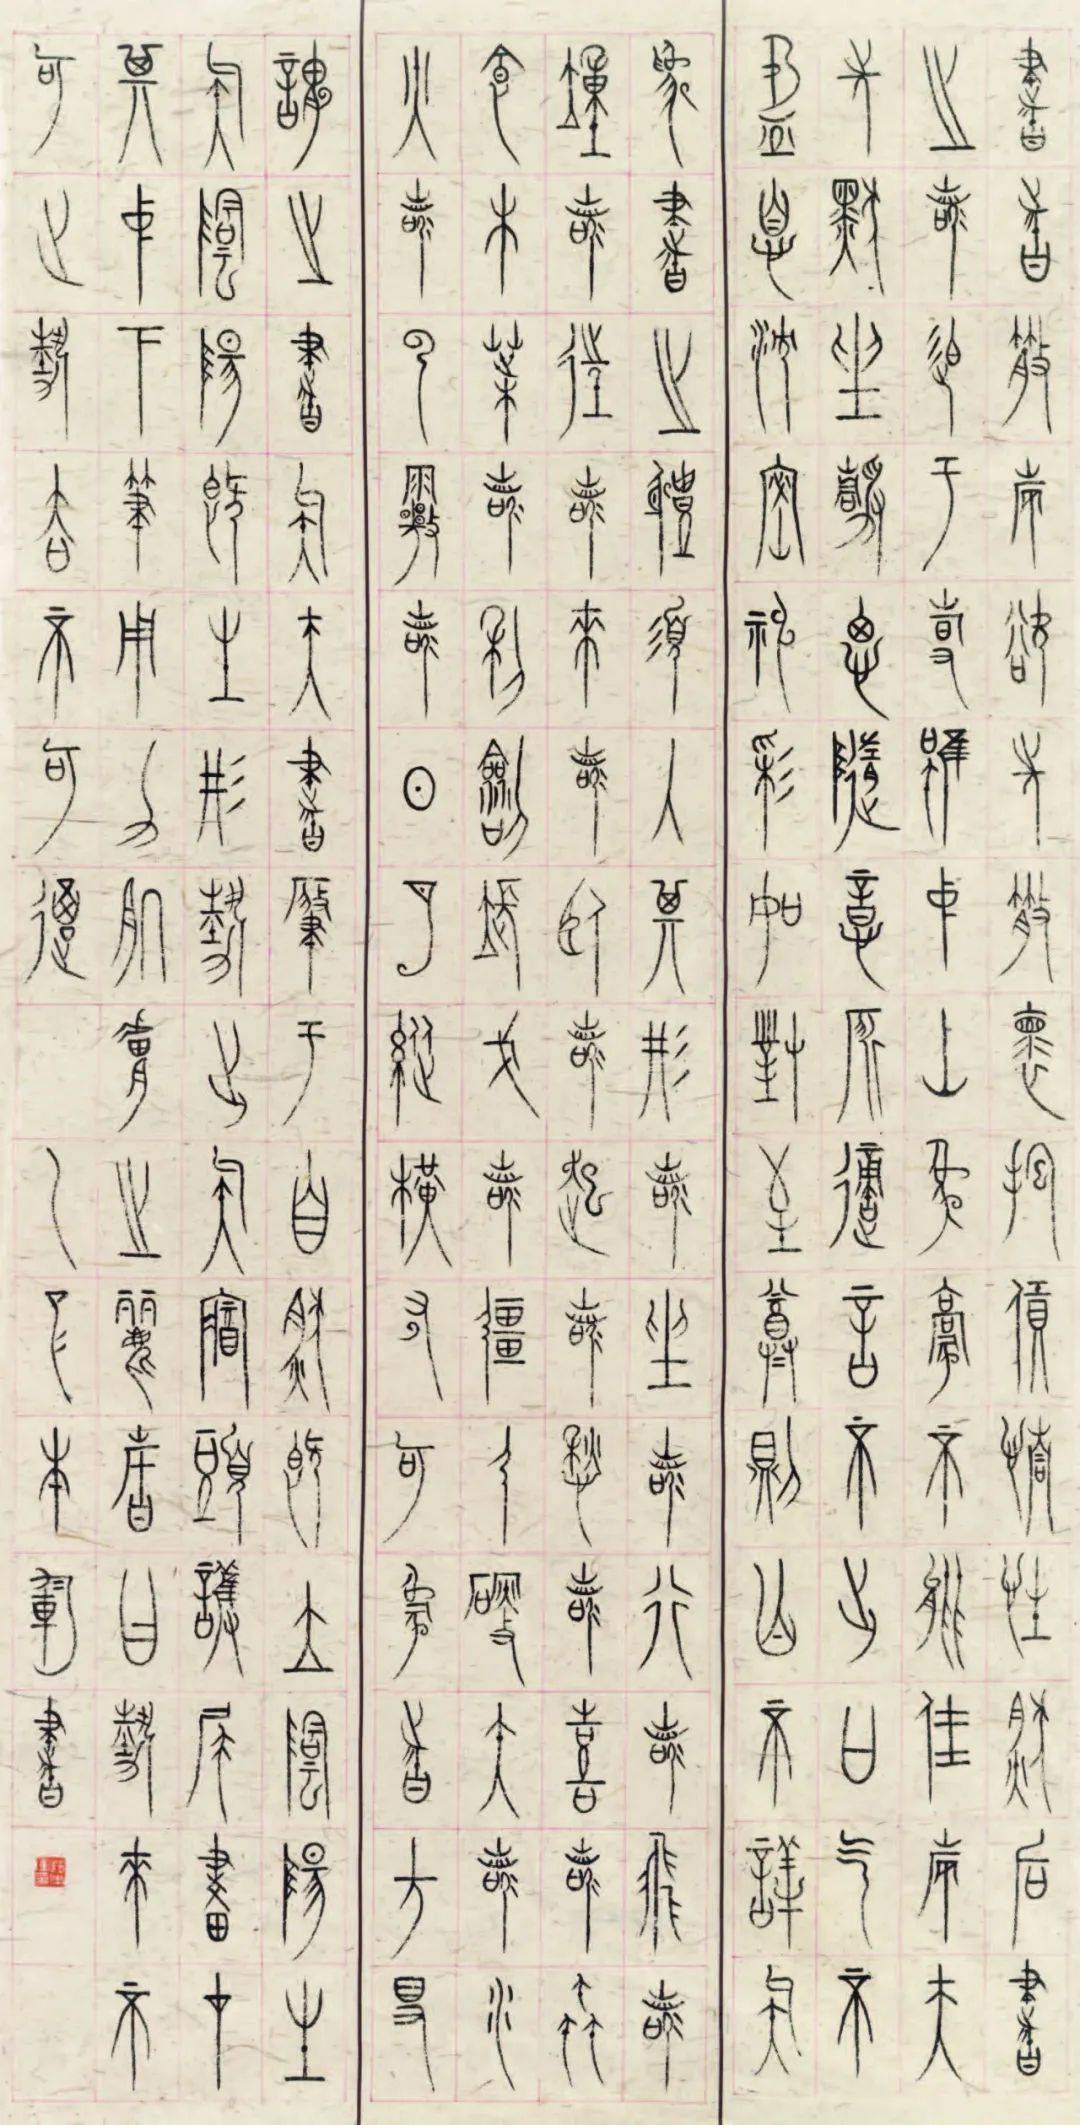 書者散也欲先散懷抱情性然后書
之若迫于事雖中山兔毫不能佳也夫
先默坐靜思隨意所適言不出口气不
盈息沈密神彩如對至尊則不善矣
為書之體須入其形若坐若行若飛若
動若往若來若臥若起若愁若喜若
食木葉若利劍長戈若彊弓硬矢若水
火若云霧若日月縱橫有可象者方得
謂之書矣夫書肇于自然既立陰陽生
矣陰陽既生形勢出矣藏頭護尾畫中
其中下筆用力肌膚之麗故曰勢來不
可止勢去不可遏 本書